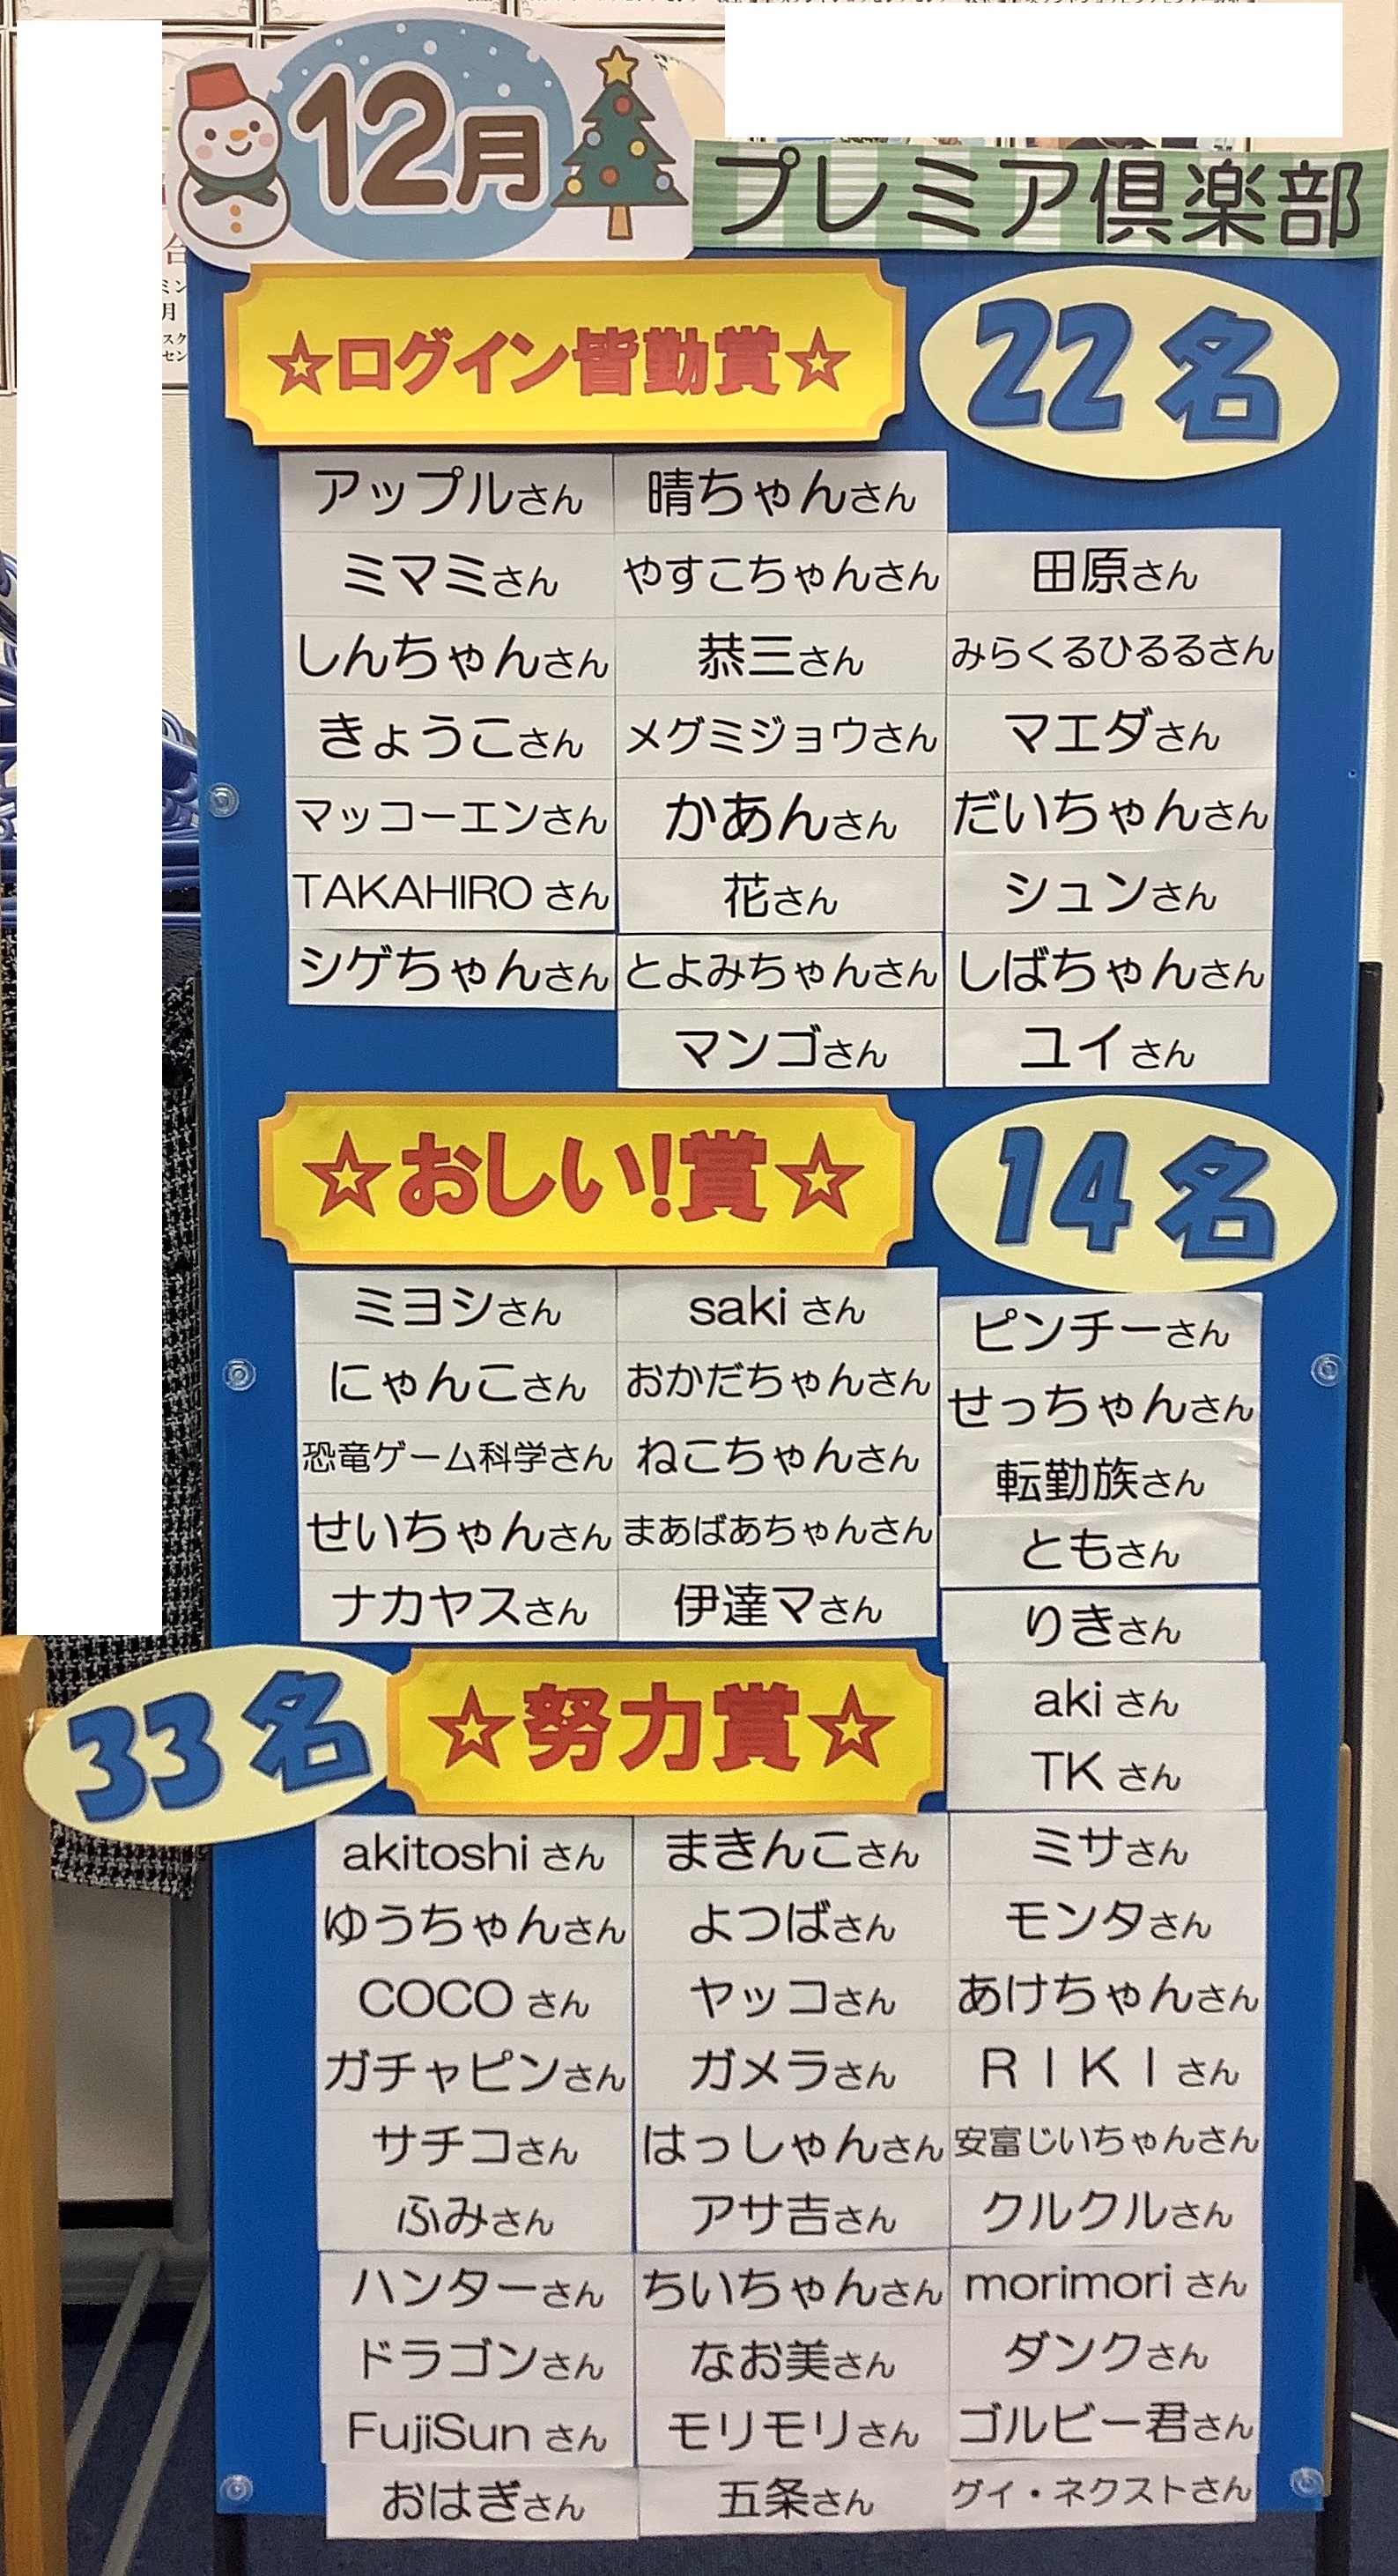 12月
プレミア倶楽部
☆ログイン皆勤賞☆
22名
アップルさん
ミマミさん
しんちゃんさん
きょうこさん
マッコーエンさん
TAKAHIRO さん
シゲちゃんさん
晴ちゃんさん
やすこちゃんさん
恭三さん
メグミジョウさん
かあんさん
花さん
とよみちゃんさん
マンゴさん
田原さん
みらくるひるるさん
マエダさん
だいちゃんさん
シュンさん
しばちゃんさん
ユイさん
☆おしい!賞☆
14名
ミヨシさん
にゃんこさん
恐竜ゲーム科学さん
せいちゃんさん
ナカヤスさん
saki さん
おかだちゃんさん
ねこちゃんさん
まあばあちゃんさん
伊達マさん
ピンチーさん
せっちゃんさん
転勤族さん
ともさん
りきさん
aki さん
TK さん
33名
☆努力賞☆
akitoshi さん
ゆうちゃんさん
COCO さん
ガチャピンさん
サチコさん
ふみさん
ハンターさん
ドラゴンさん
FujiSun さん
おはぎさん
まきんこさん
よつばさん
ヤッコさん
ガメラさん
はっしゃんさん
アサ吉さん
ちいちゃんさん
なお美さん
モリモリさん
五条さん
ミサさん
モンタさん
あけちゃんさん
ＲＩＫＩさん
安富じいちゃんさん
クルクルさん
morimori さん
ダンクさん
ゴルビー君さん
グイ・ネクストさん